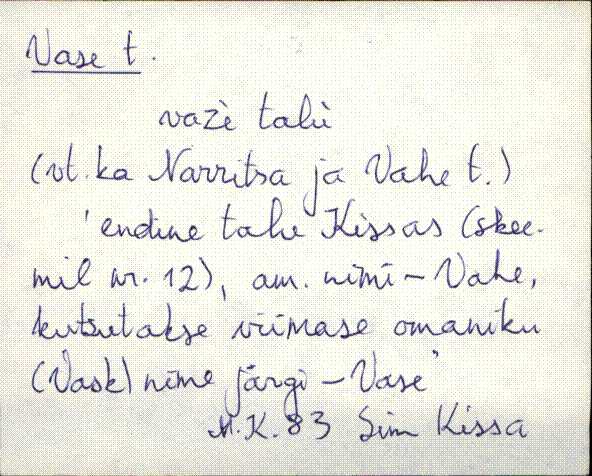 Vase t.
važè talù
(vt. ka Narritsa ja Vahe t.)
'endine talu Kissas (skee-
mil nr. 12), am. nimi - Vahe,
kutsutakse viimase omaniku
(Vask) nime järgi - Vase"
M.K. 83 Sim Kissa